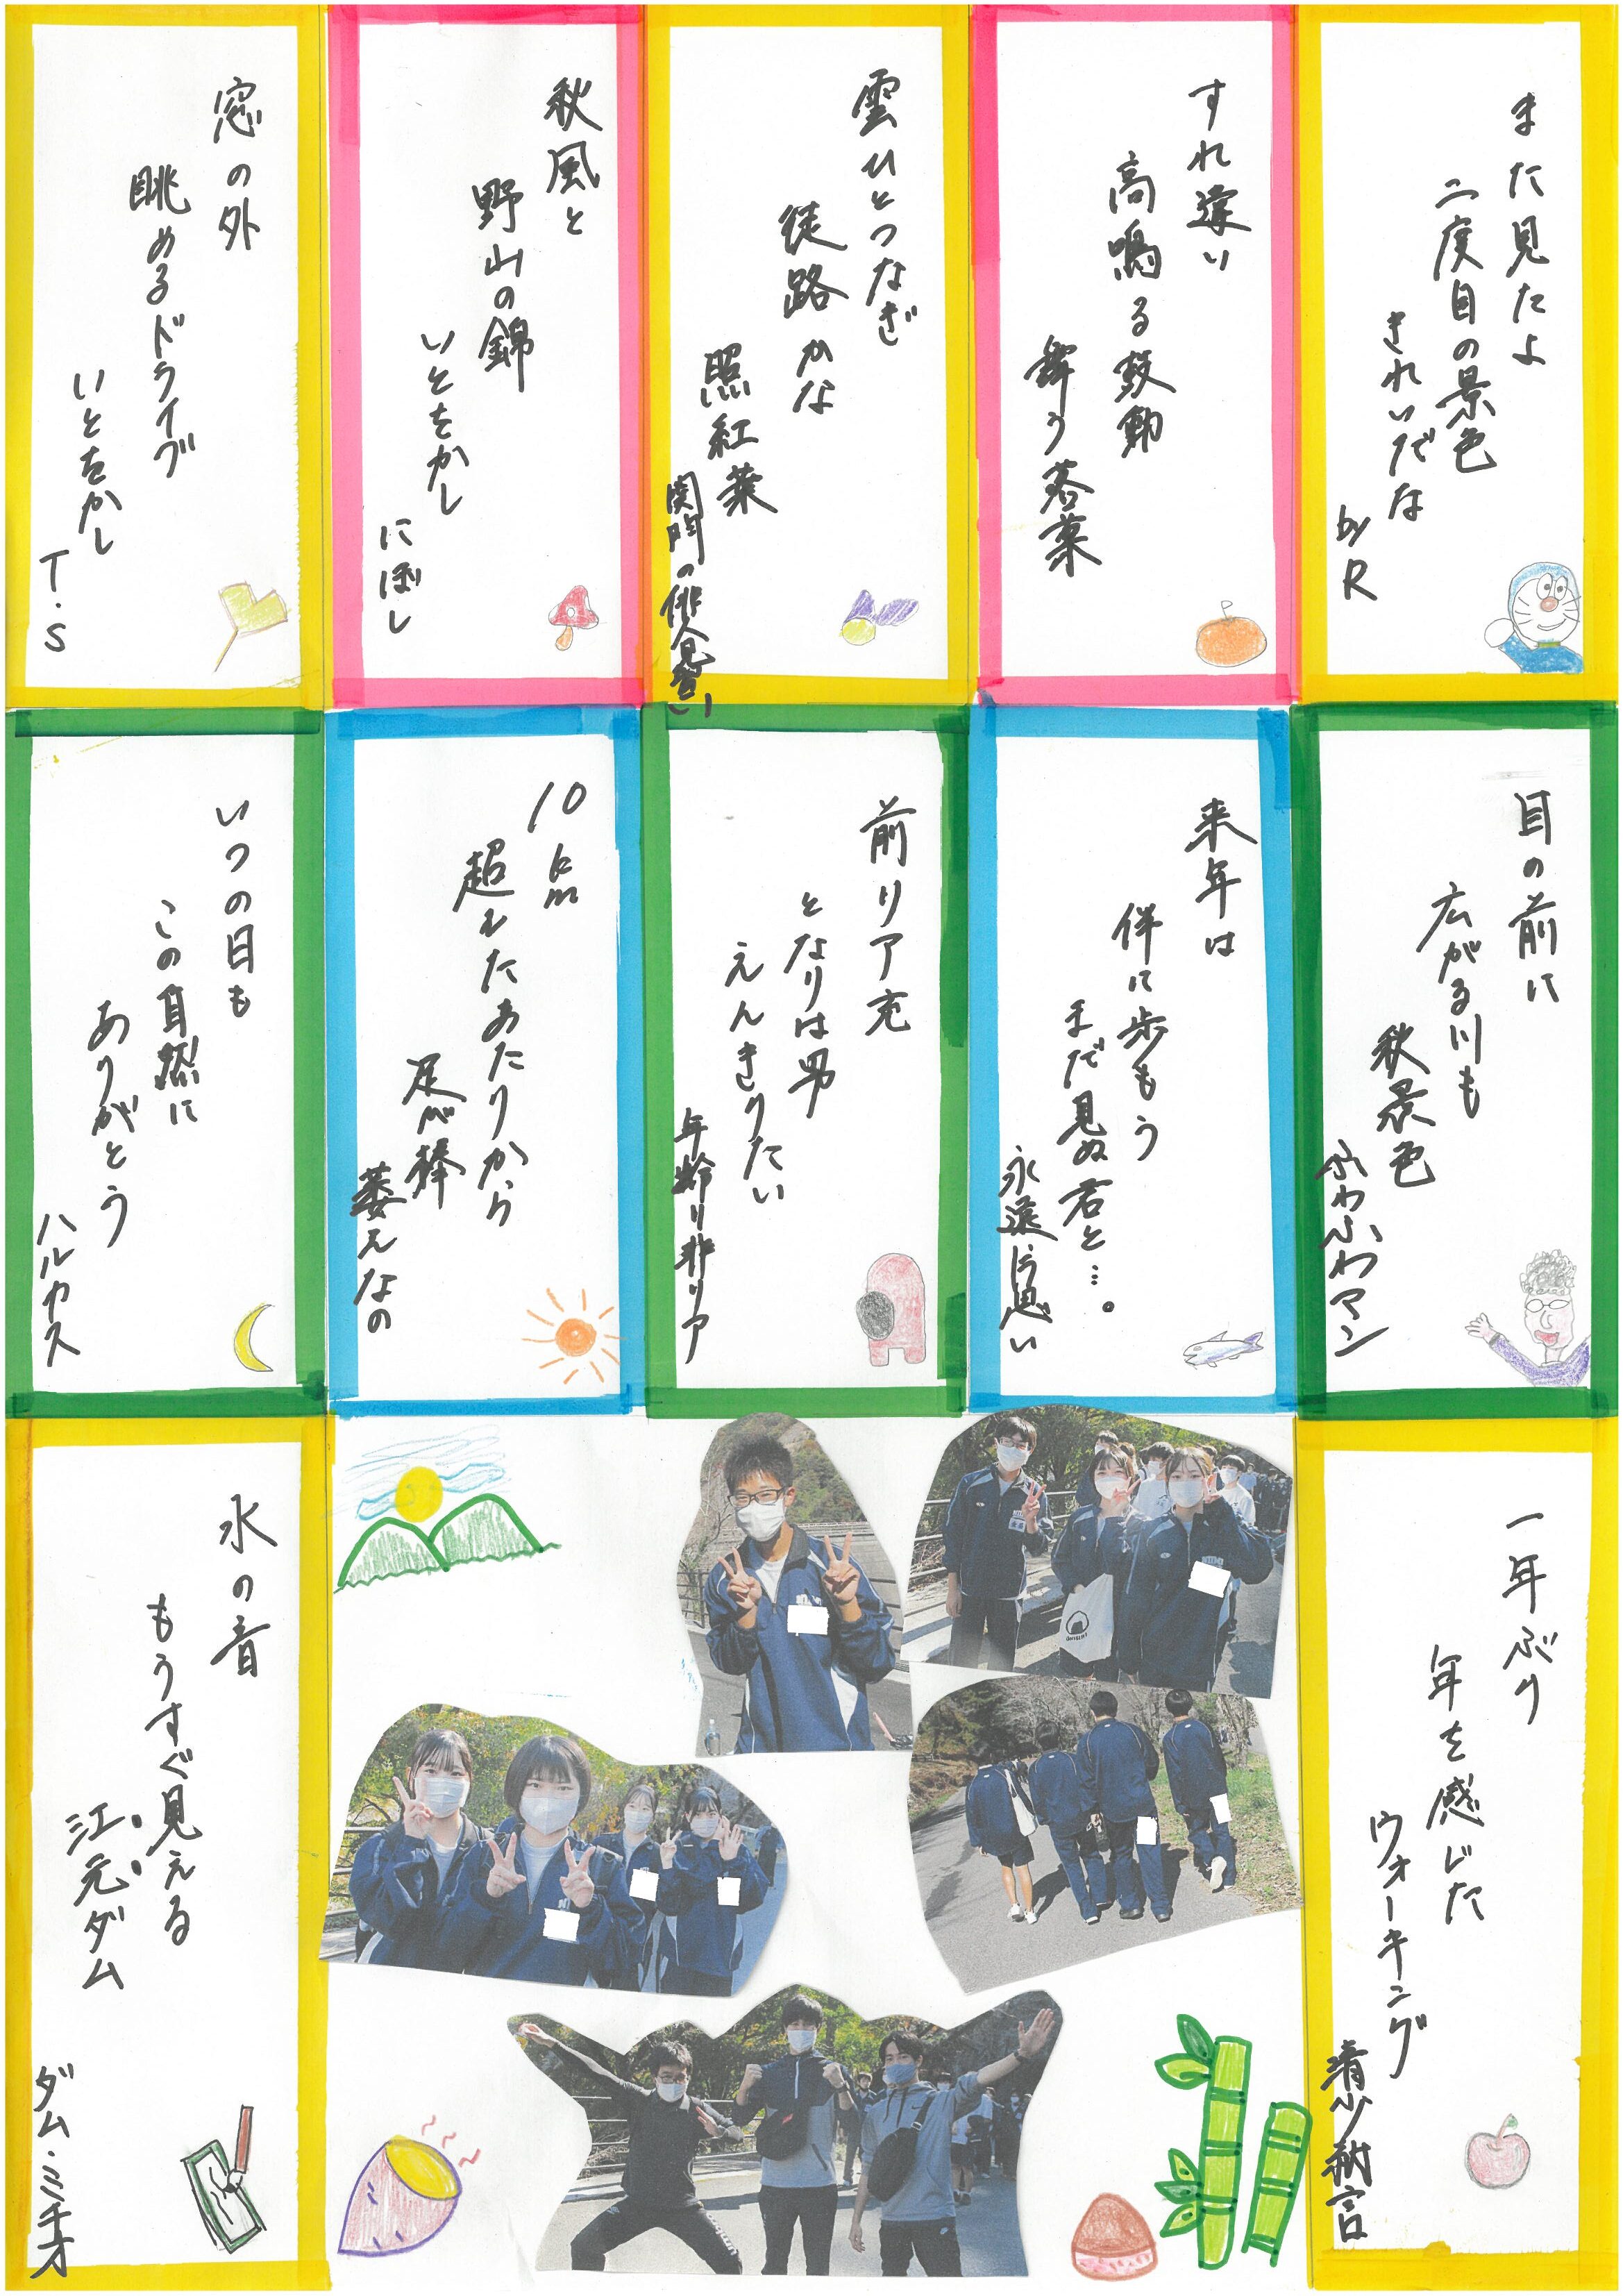 また見たよ
二度目の景色
きれいだな
by R
すれ違い
高鳴る鼓動
舞う落葉
雲ひとつなぎ
徒路かな
照紅葉
関門の俳人見習い
秋風と
野山の錦
いとをかし
にぼし
窓の外
眺めるドライブ
いとをかし
T.S
目の前に
広がる川も
秋景色
ふわふわマン
来年は
伴に歩もう
まだ見ぬ君と…。
永遠片思い
前リア充
となりは男
えんきりたい
年齢リ非リア
10km
超えたあたりから
足が棒
萎えなの
いつの日も
この自然に
ありがとう
ハルカス
一年ぶり
年を感じた
ウォーキング
清少納言
水の音
もうすぐ見える
江元ダム
ダム・ミチオ